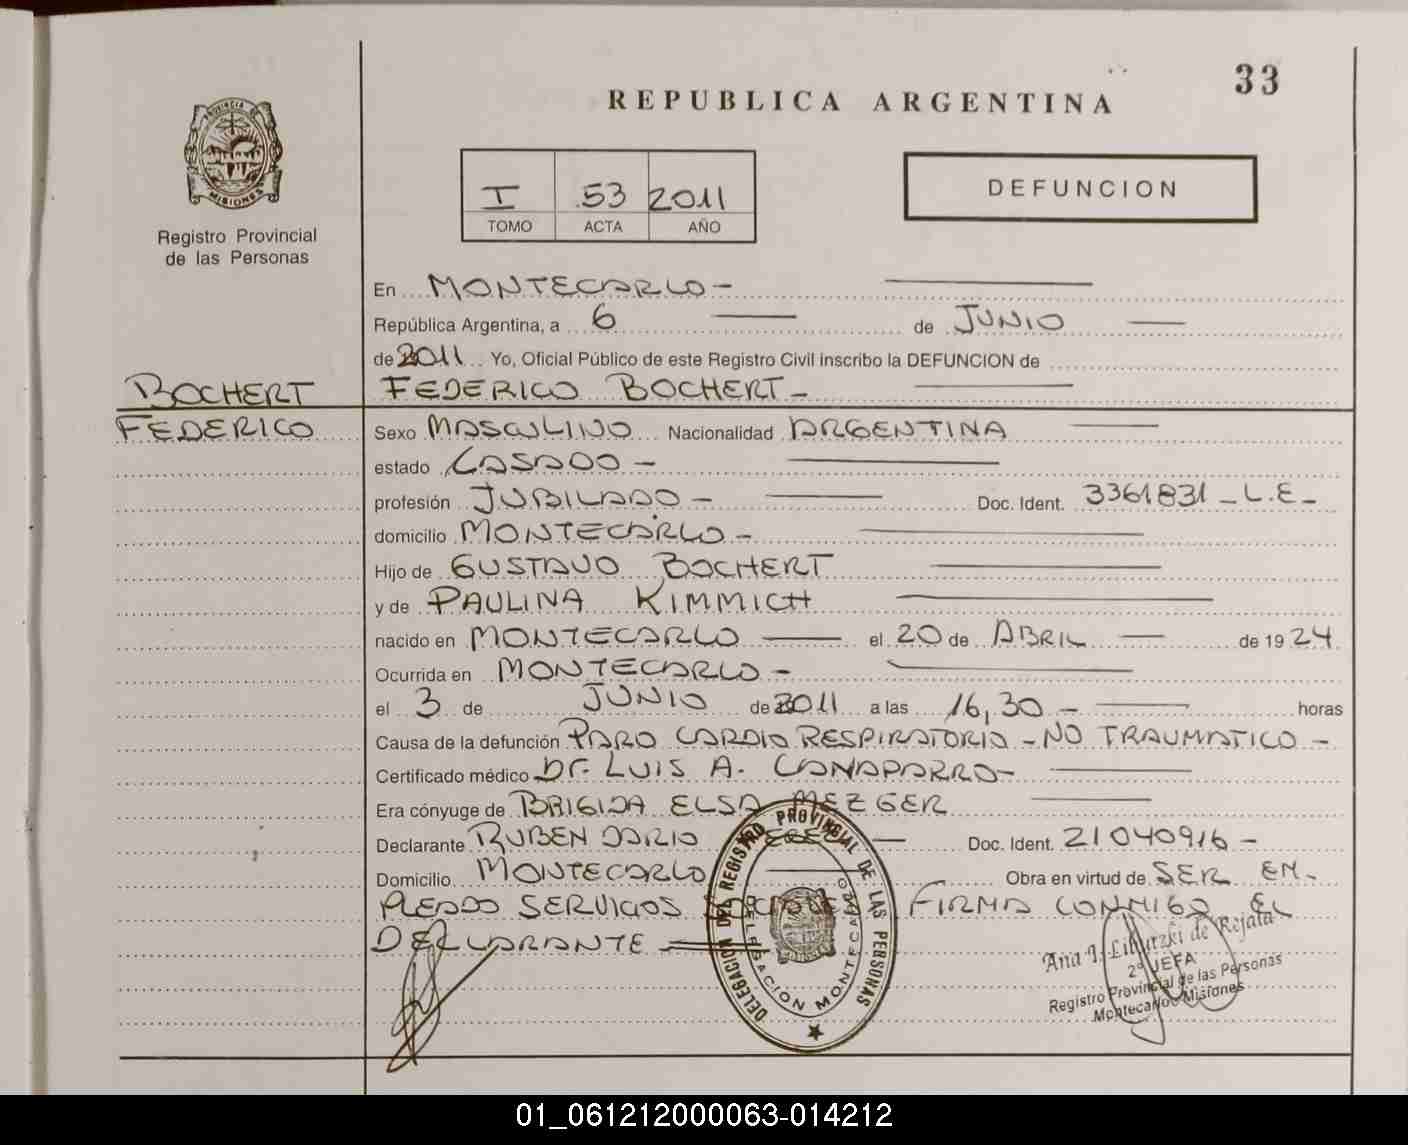 33
REPUBLICA ARGENTINA
PROVINCIA DE
MISIONES
Registro Provincial
de las Personas
I 53 2011
TOMO ACTA AÑO
DEFUNCION
En MONTECARLO -
República Argentina, a 6 de JUNIO
de 2011 Yo, Oficial Público de este Registro Civil inscribo la DEFUNCION de
BOCHERT FEDERICO BOCHERT -
FEDERICO Sexo MASCULINO Nacionalidad ARGENTINA
estado CASADO -
profesión JUBILADO - Doc. Ident. 3361831 - L.E -
domicilio MONTECARLO -
Hijo de GUSTAVO BOCHERT
y de PAULINA KIMMICH
nacido en MONTECARLO el 20 de ABRIL de 1924
Ocurrida en MONTECARLO -
el 3 de JUNIO de 2011 a las 16,30 - horas
Causa de la defunción PARO CARDIO RESPIRATORIO - NO TRAUMATICO -
Certificado médico Dr. LUIS A. CANAPARRO -
Era cónyuge de BRIGIDA ELSA MEZGER
Declarante RUBEN DARIO Doc. Ident. 21040916 -
Domicilio MONTECARLO Obra en virtud de SER EM-
PLEADO SERVICIOS FIRMA CONMIGO EL
DECLARANTE
DELEGACION DEL REGISTRO PROVINCIAL DE LAS PERSONAS
DELEGACION MONTECARLO
Ana I. de Rejala
2º JEFA
Registro Provincial de las Personas
Montecarlo Misiones
01_061212000063-014212